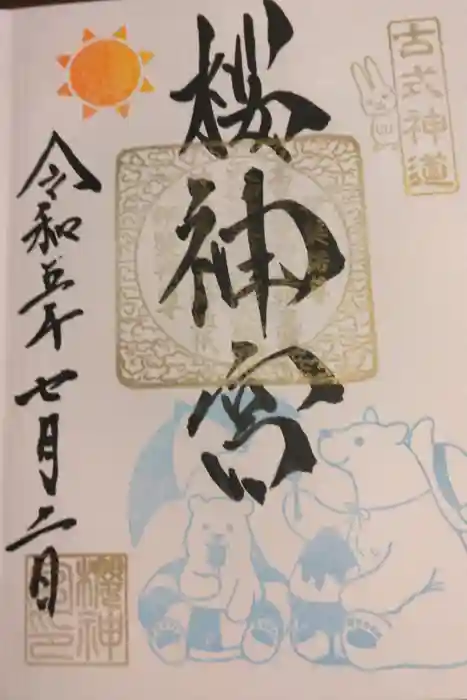 古式神道
櫻神宮
令和五年七月二日
櫻神
宮印